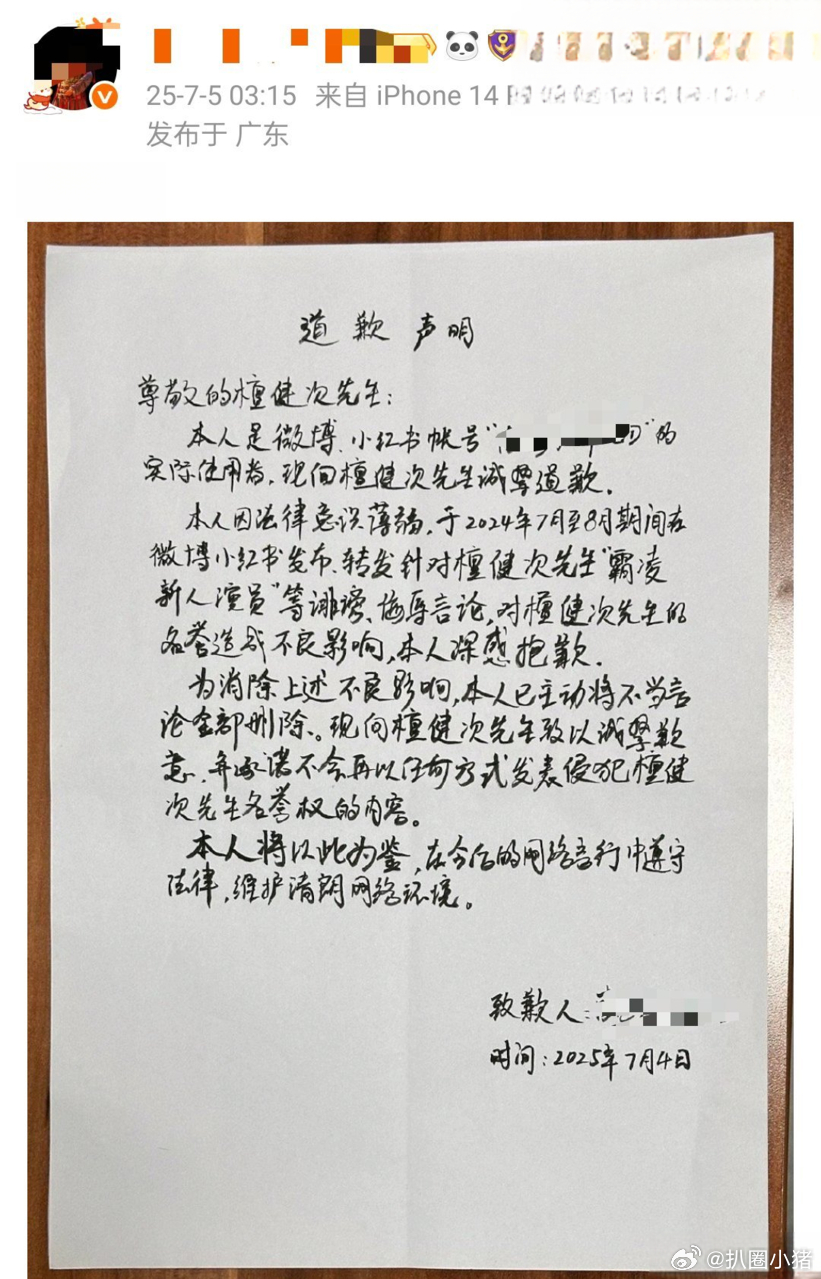 25-7-5 03:15 来自 iPhone 14
发布于 广东
道歉声明
尊敬的檀健次先生：
本人是微博、小红书帐号“ ”的
实际使用者，现向檀健次先生诚挚道歉。
本人因法律意识薄弱，于2024年7月至8月期间在
微博小红书发布、转发针对檀健次先生“霸凌
新人演员”等诽谤、侮辱言论，对檀健次先生的
名誉造成不良影响，本人深感抱歉。
为消除上述不良影响，本人已主动将不当言
论全部删除。现向檀健次先生致以诚挚歉
意，并承诺不会再以任何方式发表侵犯檀健
次先生名誉权的内容。
本人将以此为鉴，在今后的网络言行中遵守
法律，维护清朗网络环境。
致歉人
时间：2025年7月4日
@扒圈小猪